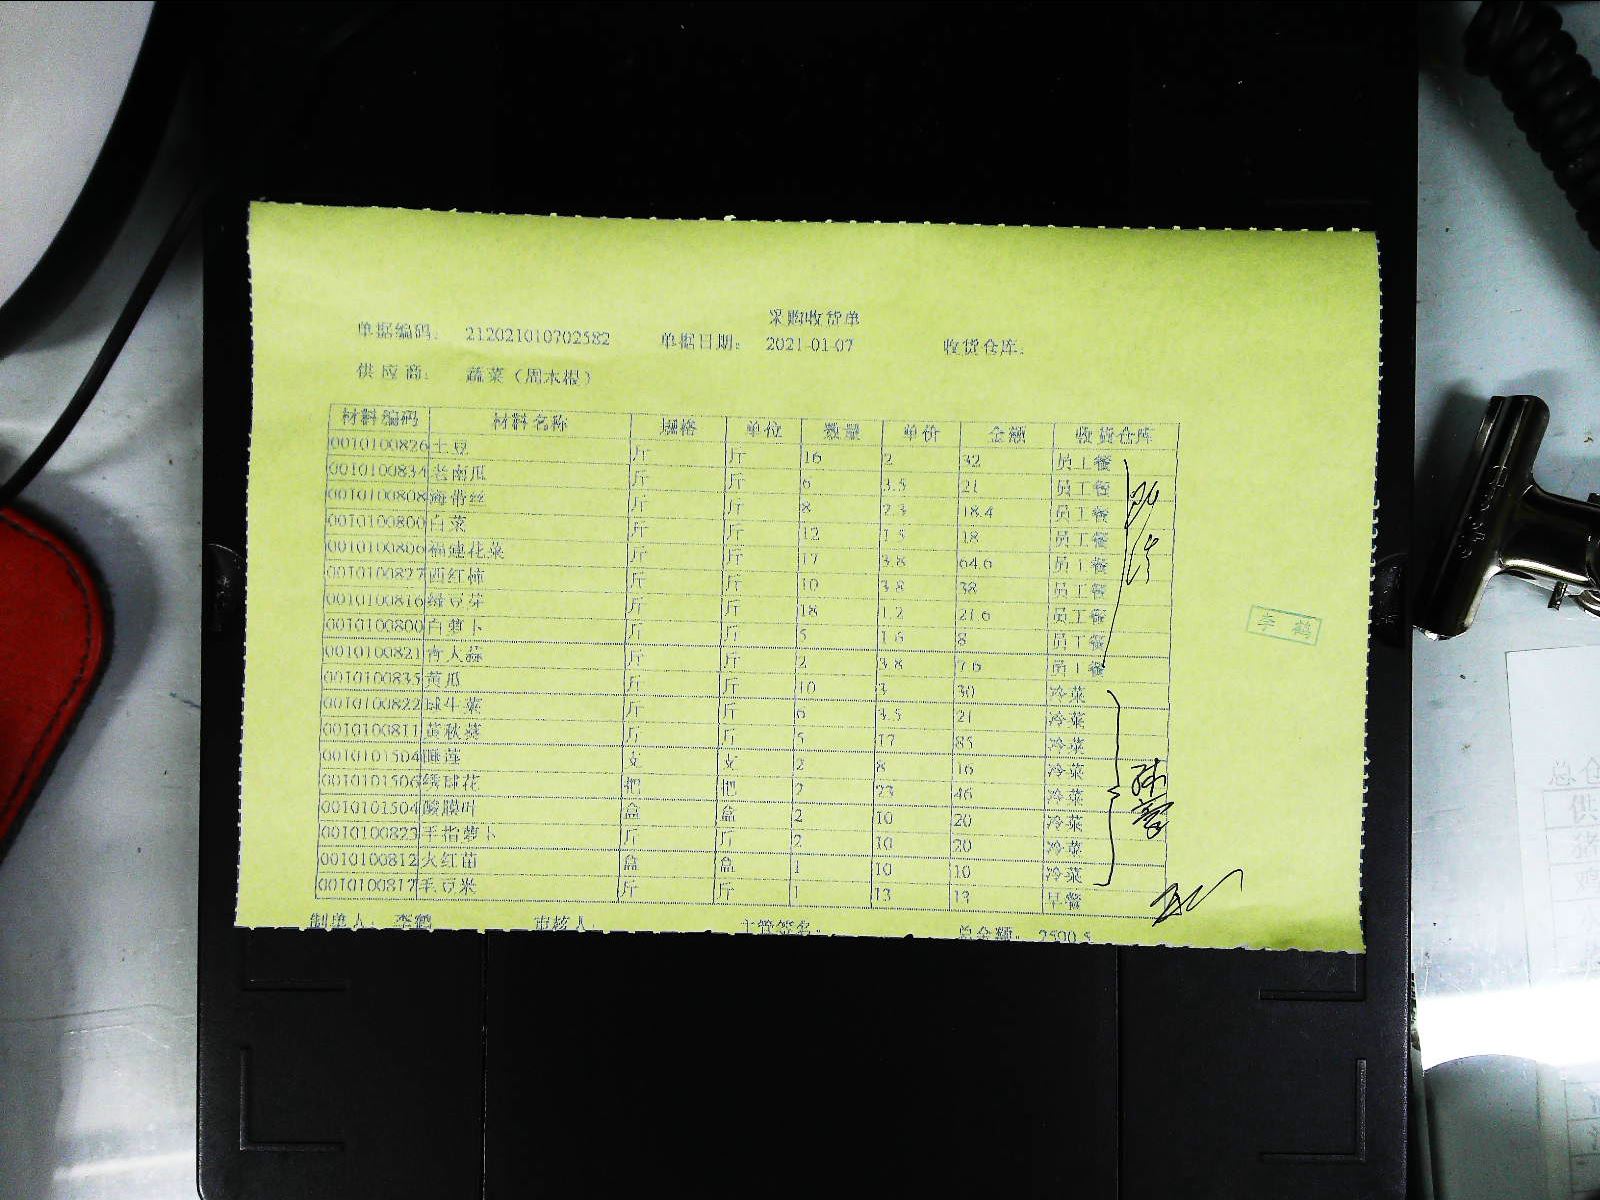 采购收货单
单据编码： 212021010702582 单据日期： 2021-01-07 收货仓库：
供应商： 蔬菜（周本根）
材料编码 材料名称 规格 单位 数量 单价 金额 收货仓库
0010100826 土豆 斤 斤 16 2 32 员工餐
0010100834 老南瓜 斤 斤 6 3.5 21 员工餐
0010100808 海带丝 斤 斤 8 2.3 18.4 员工餐
0010100800 白菜 斤 斤 12 1.5 18 员工餐
0010100806 福建花菜 斤 斤 17 3.8 64.6 员工餐
0010100827 西红柿 斤 斤 10 3.8 38 员工餐
0010100816 绿豆芽 斤 斤 18 1.2 21.6 员工餐
0010100800 白萝卜 斤 斤 5 1.6 8 员工餐
0010100821 青大蒜 斤 斤 2 3.8 7.6 员工餐
0010100835 黄瓜 斤 斤 10 3 30 冷菜
0010100822 球生菜 斤 斤 6 3.5 21 冷菜
0010100811 黄秋葵 斤 斤 5 17 85 冷菜
0010101504 睡莲 支 支 2 8 16 冷菜
0010101506 绣球花 把 把 2 23 46 冷菜
0010101504 酸膜叶 盒 盒 2 10 20 冷菜
0010100823 手指萝卜 斤 斤 2 10 20 冷菜
0010100812 火红苗 盒 盒 1 10 10 冷菜
0010100817 毛豆米 斤 斤 1 13 13 早餐
制单人： 李鹤 审核人： 主管签名： 总金额： 2500.5
李鹤